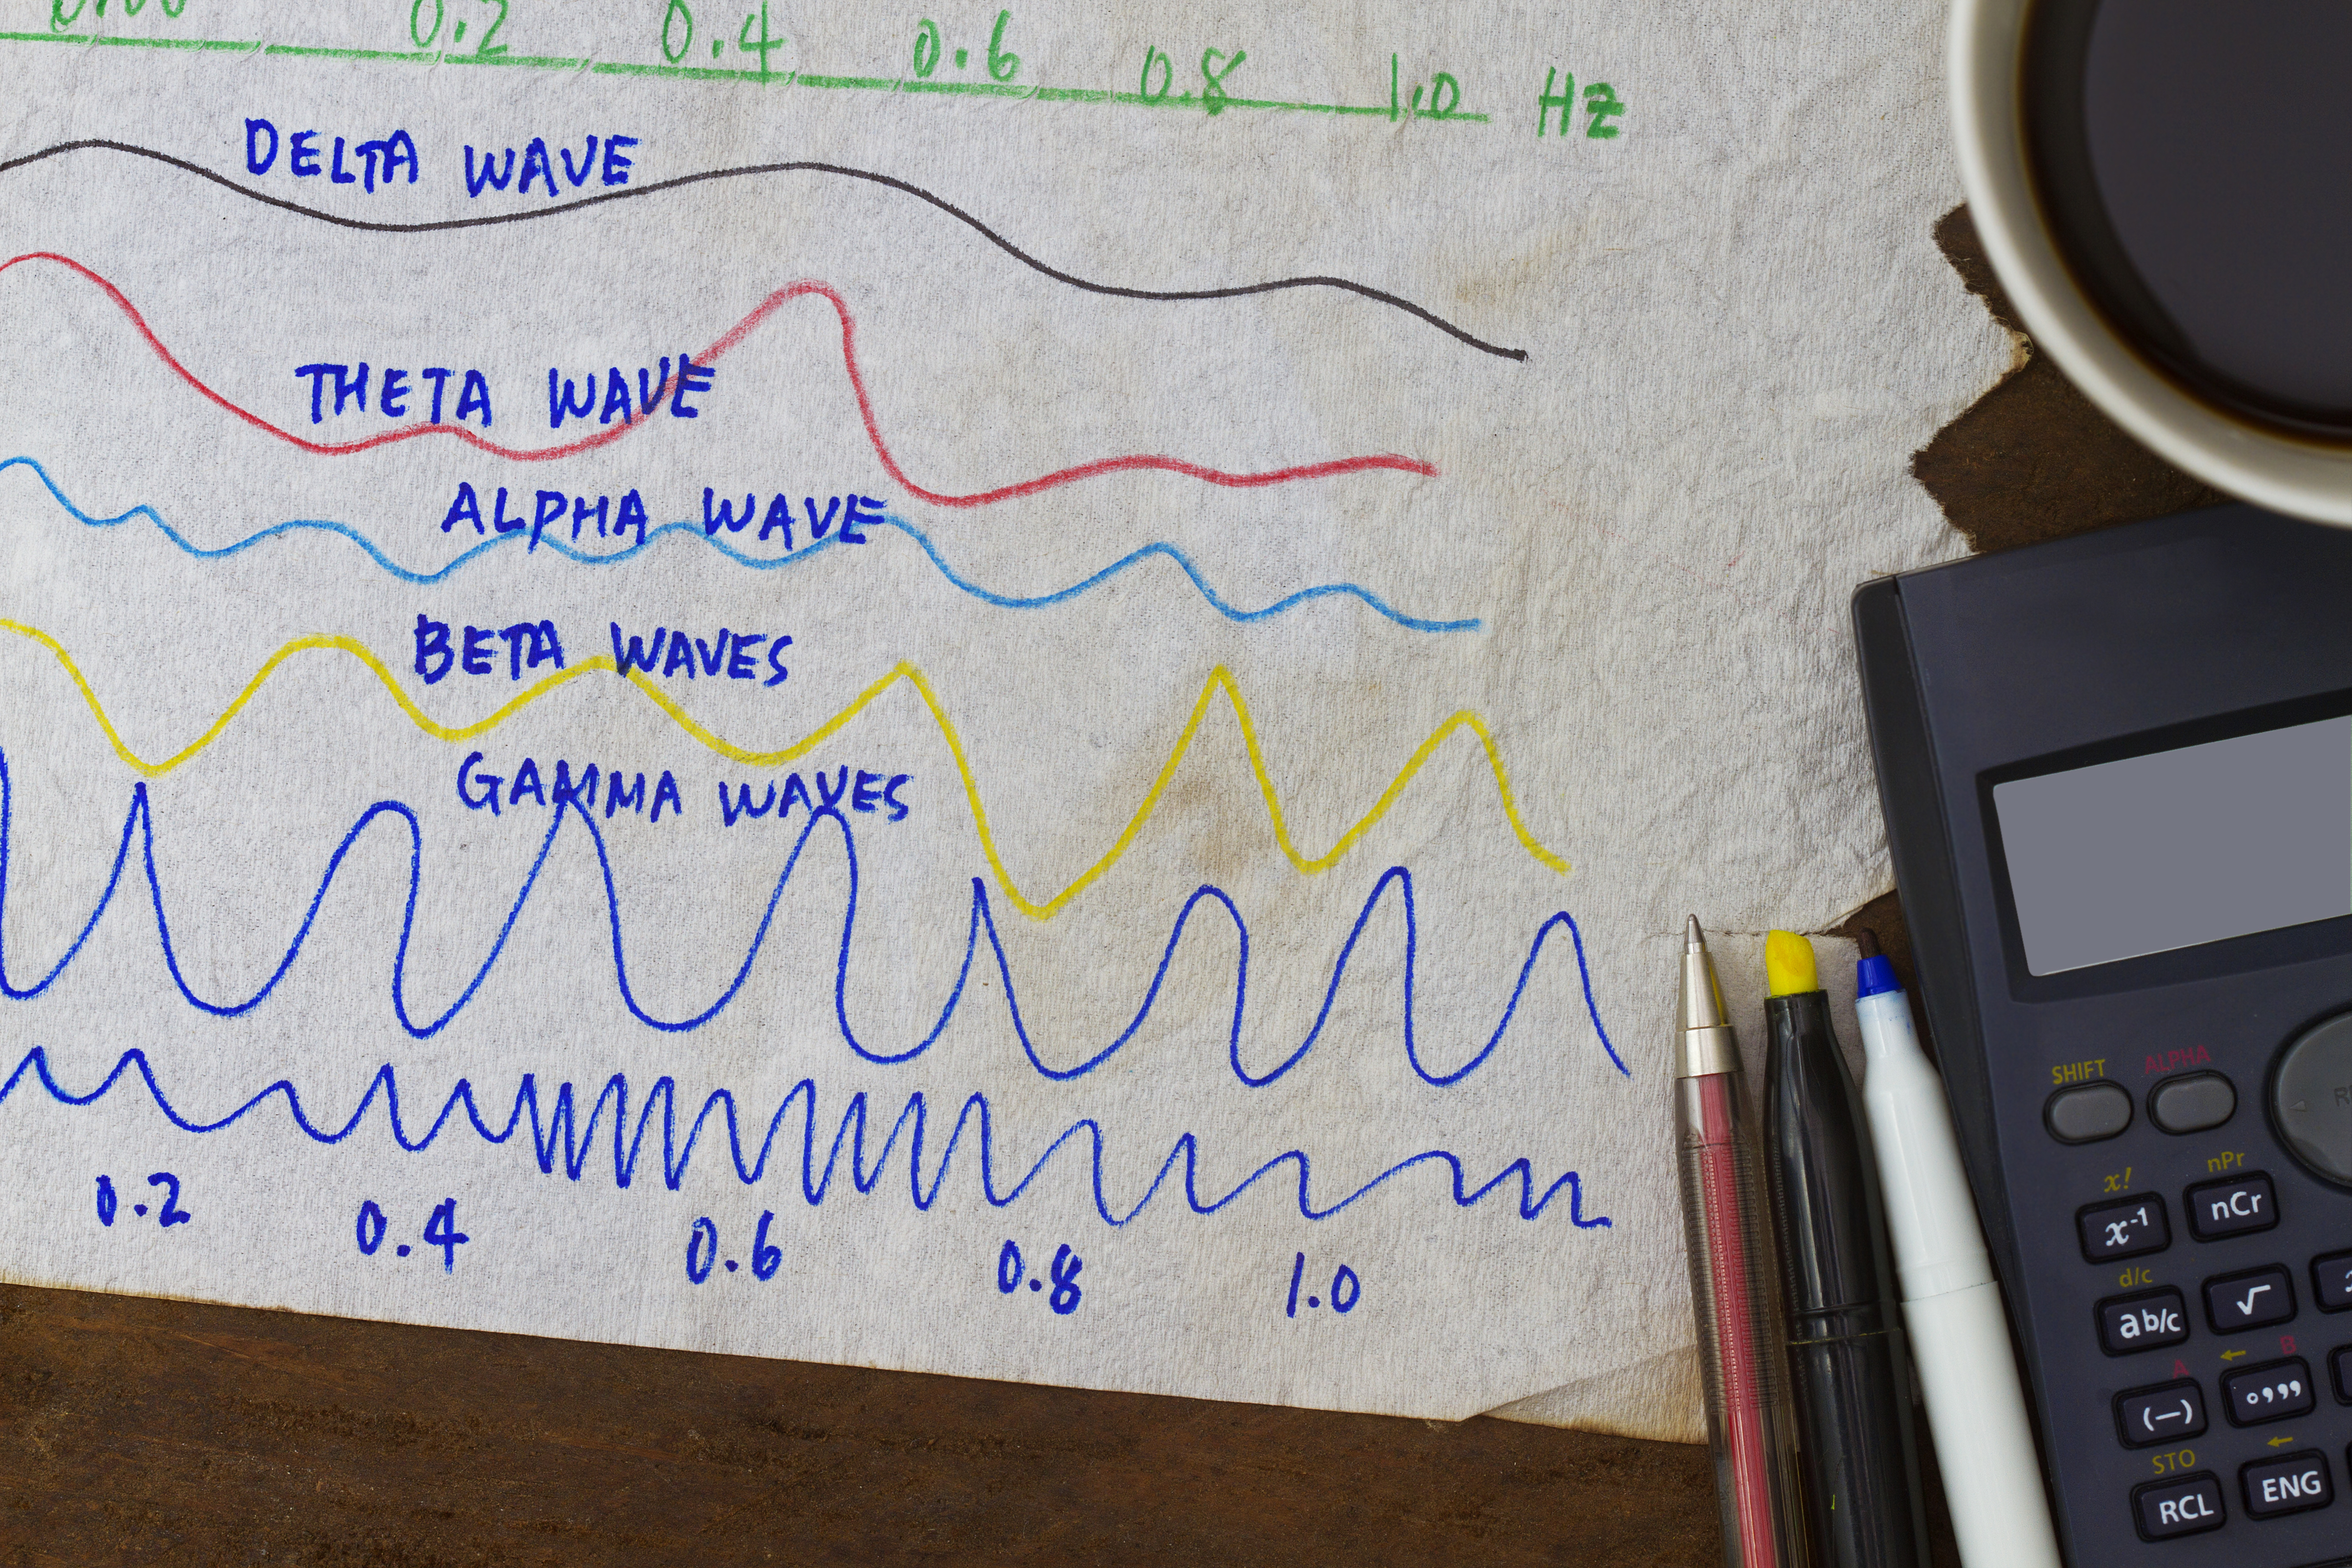 0.00 0.2 0.4 0.6 0.8 1.0 Hz
DELTA WAVE
THETA WAVE
ALPHA WAVE
BETA WAVES
GAMMA WAVES
0.2 0.4 0.6 0.8 1.0
SHIFT ALPHA
x! nPr
x⁻¹ nCr
d/c
ab/c √
A B
(—) ° ’ ’ ’
STO
RCL ENG